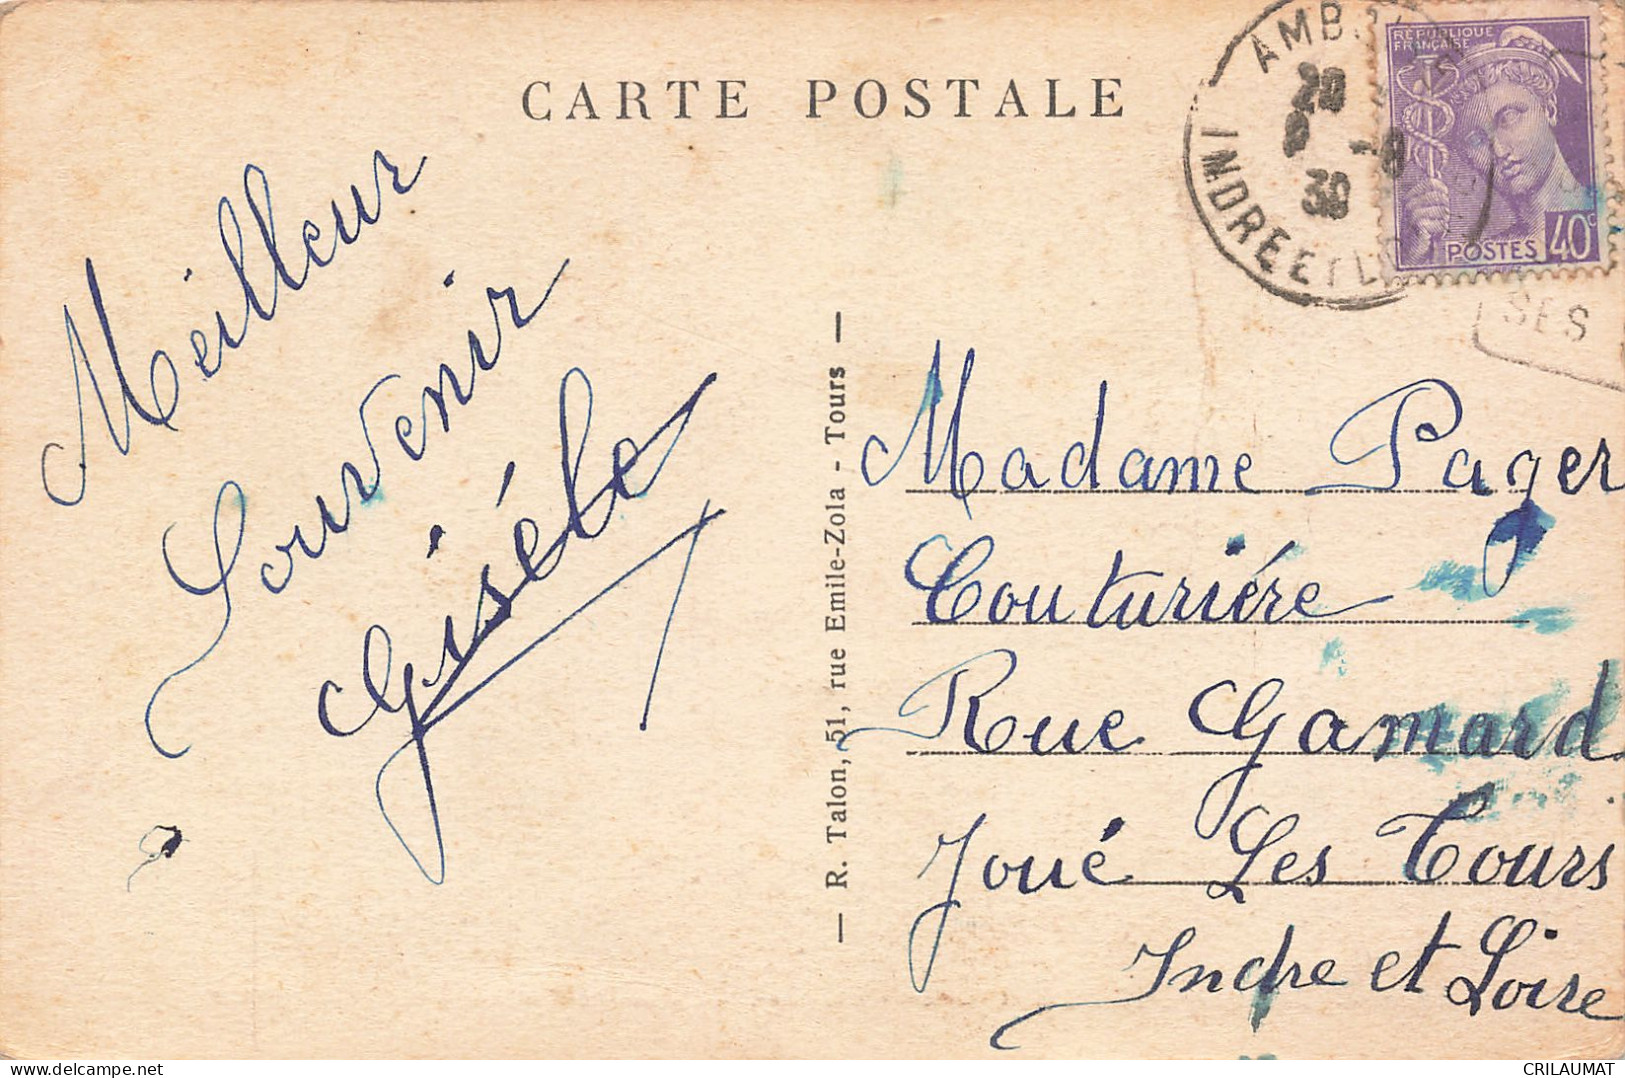 CARTE POSTALE
Meilleur
Souvenir
Gisèle
R. Talon, 51, rue Emile-Zola - Tours
RÉPUBLIQUE
FRANÇAISE
POSTES 40c
20
30
INDRE ET L
SES
Madame Pager
Couturiére
Rue Gamard
Joué Les Tours
Indre et Loire
CRILAUMAT